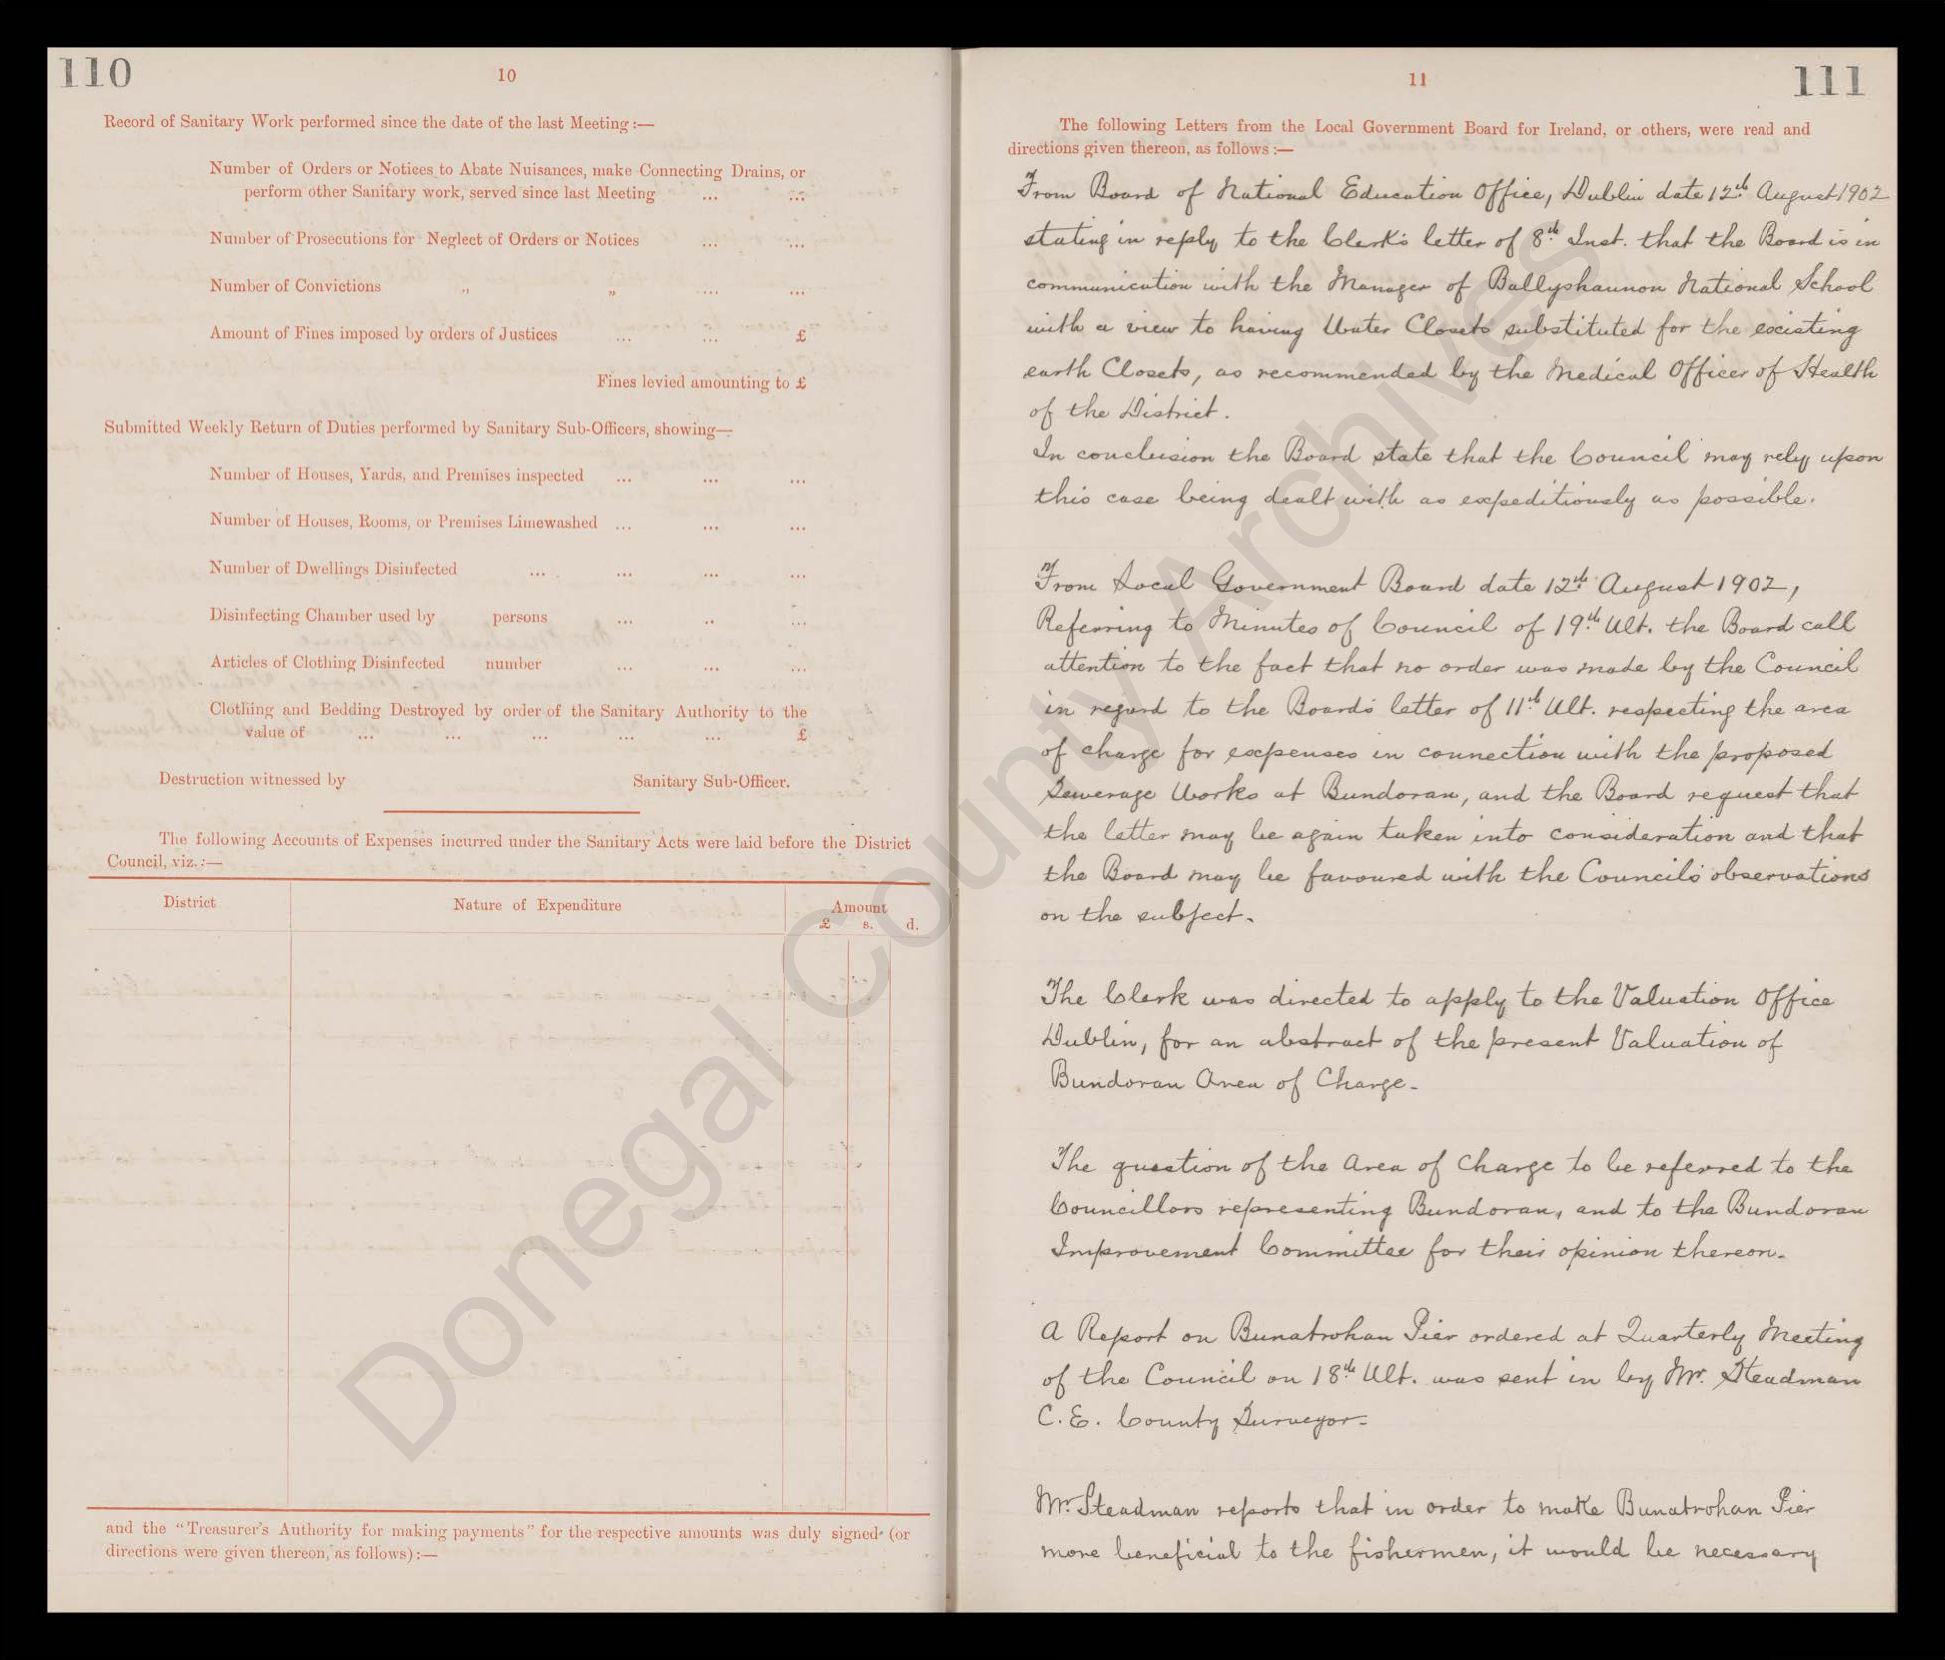 110
10
Record of Sanitary Work performed since the date of the last Meeting :—
Number of Orders or Notices to Abate Nuisances, make Connecting Drains, or
perform other Sanitary work, served since last Meeting ... ...
Number of Prosecutions for Neglect of Orders or Notices ... ...
Number of Convictions „ „ ... ...
Amount of Fines imposed by orders of Justices ... ... £
Fines levied amounting to £
Submitted Weekly Return of Duties performed by Sanitary Sub-Officers, showing—
Number of Houses, Yards, and Premises inspected ... ... ...
Number of Houses, Rooms, or Premises Limewashed ... ... ...
Number of Dwellings Disinfected ... ... ... ...
Disinfecting Chamber used by persons ... .. ...
Articles of Clothing Disinfected number ... ... ...
Clothing and Bedding Destroyed by order of the Sanitary Authority to the
value of ... ... ... ... ... £
Destruction witnessed by Sanitary Sub-Officer.
The following Accounts of Expenses incurred under the Sanitary Acts were laid before the District
Council, viz. :—
District Nature of Expenditure Amount
£ s. d.
and the "Treasurer's Authority for making payments" for the respective amounts was duly signed (or
directions were given thereon, as follows) :—
11
111
The following Letters from the Local Government Board for Ireland, or others, were read and
directions given thereon, as follows :—
From Board of National Education Office, Dublin date 12th August 1902
stating in reply to the Clerk's letter of 8th Inst. that the Board is in
communication with the Manager of Ballyshannon National School
with a view to having Water Closets substituted for the existing
earth Closets, as recommended by the Medical Officer of Health
of the District.
In conclusion the Board state that the Council may rely upon
this case being dealt with as expeditiously as possible.
From Local Government Board date 12th August 1902,
Referring to Minutes of Council of 19th Ult. the Board call
attention to the fact that no order was made by the Council
in regard to the Board's letter of 11th Ult. respecting the area
of charge for expenses in connection with the proposed
Sewerage Works at Bundoran, and the Board request that
the letter may be again taken into consideration and that
the Board may be favoured with the Council's observations
on the subject.
The Clerk was directed to apply to the Valuation Office
Dublin, for an abstract of the present Valuation of
Bundoran Area of Charge.
The question of the Area of Charge to be referred to the
Councillors representing Bundoran, and to the Bundoran
Improvement Committee for their opinion thereon.
A Report on Bunatrohan Pier ordered at Quarterly Meeting
of the Council on 18th Ult. was sent in by Mr. Steadman
C.E. County Surveyor.
Mr. Steadman reports that in order to make Bunatrohan Pier
more beneficial to the fishermen, it would be necessary
Donegal County Archives